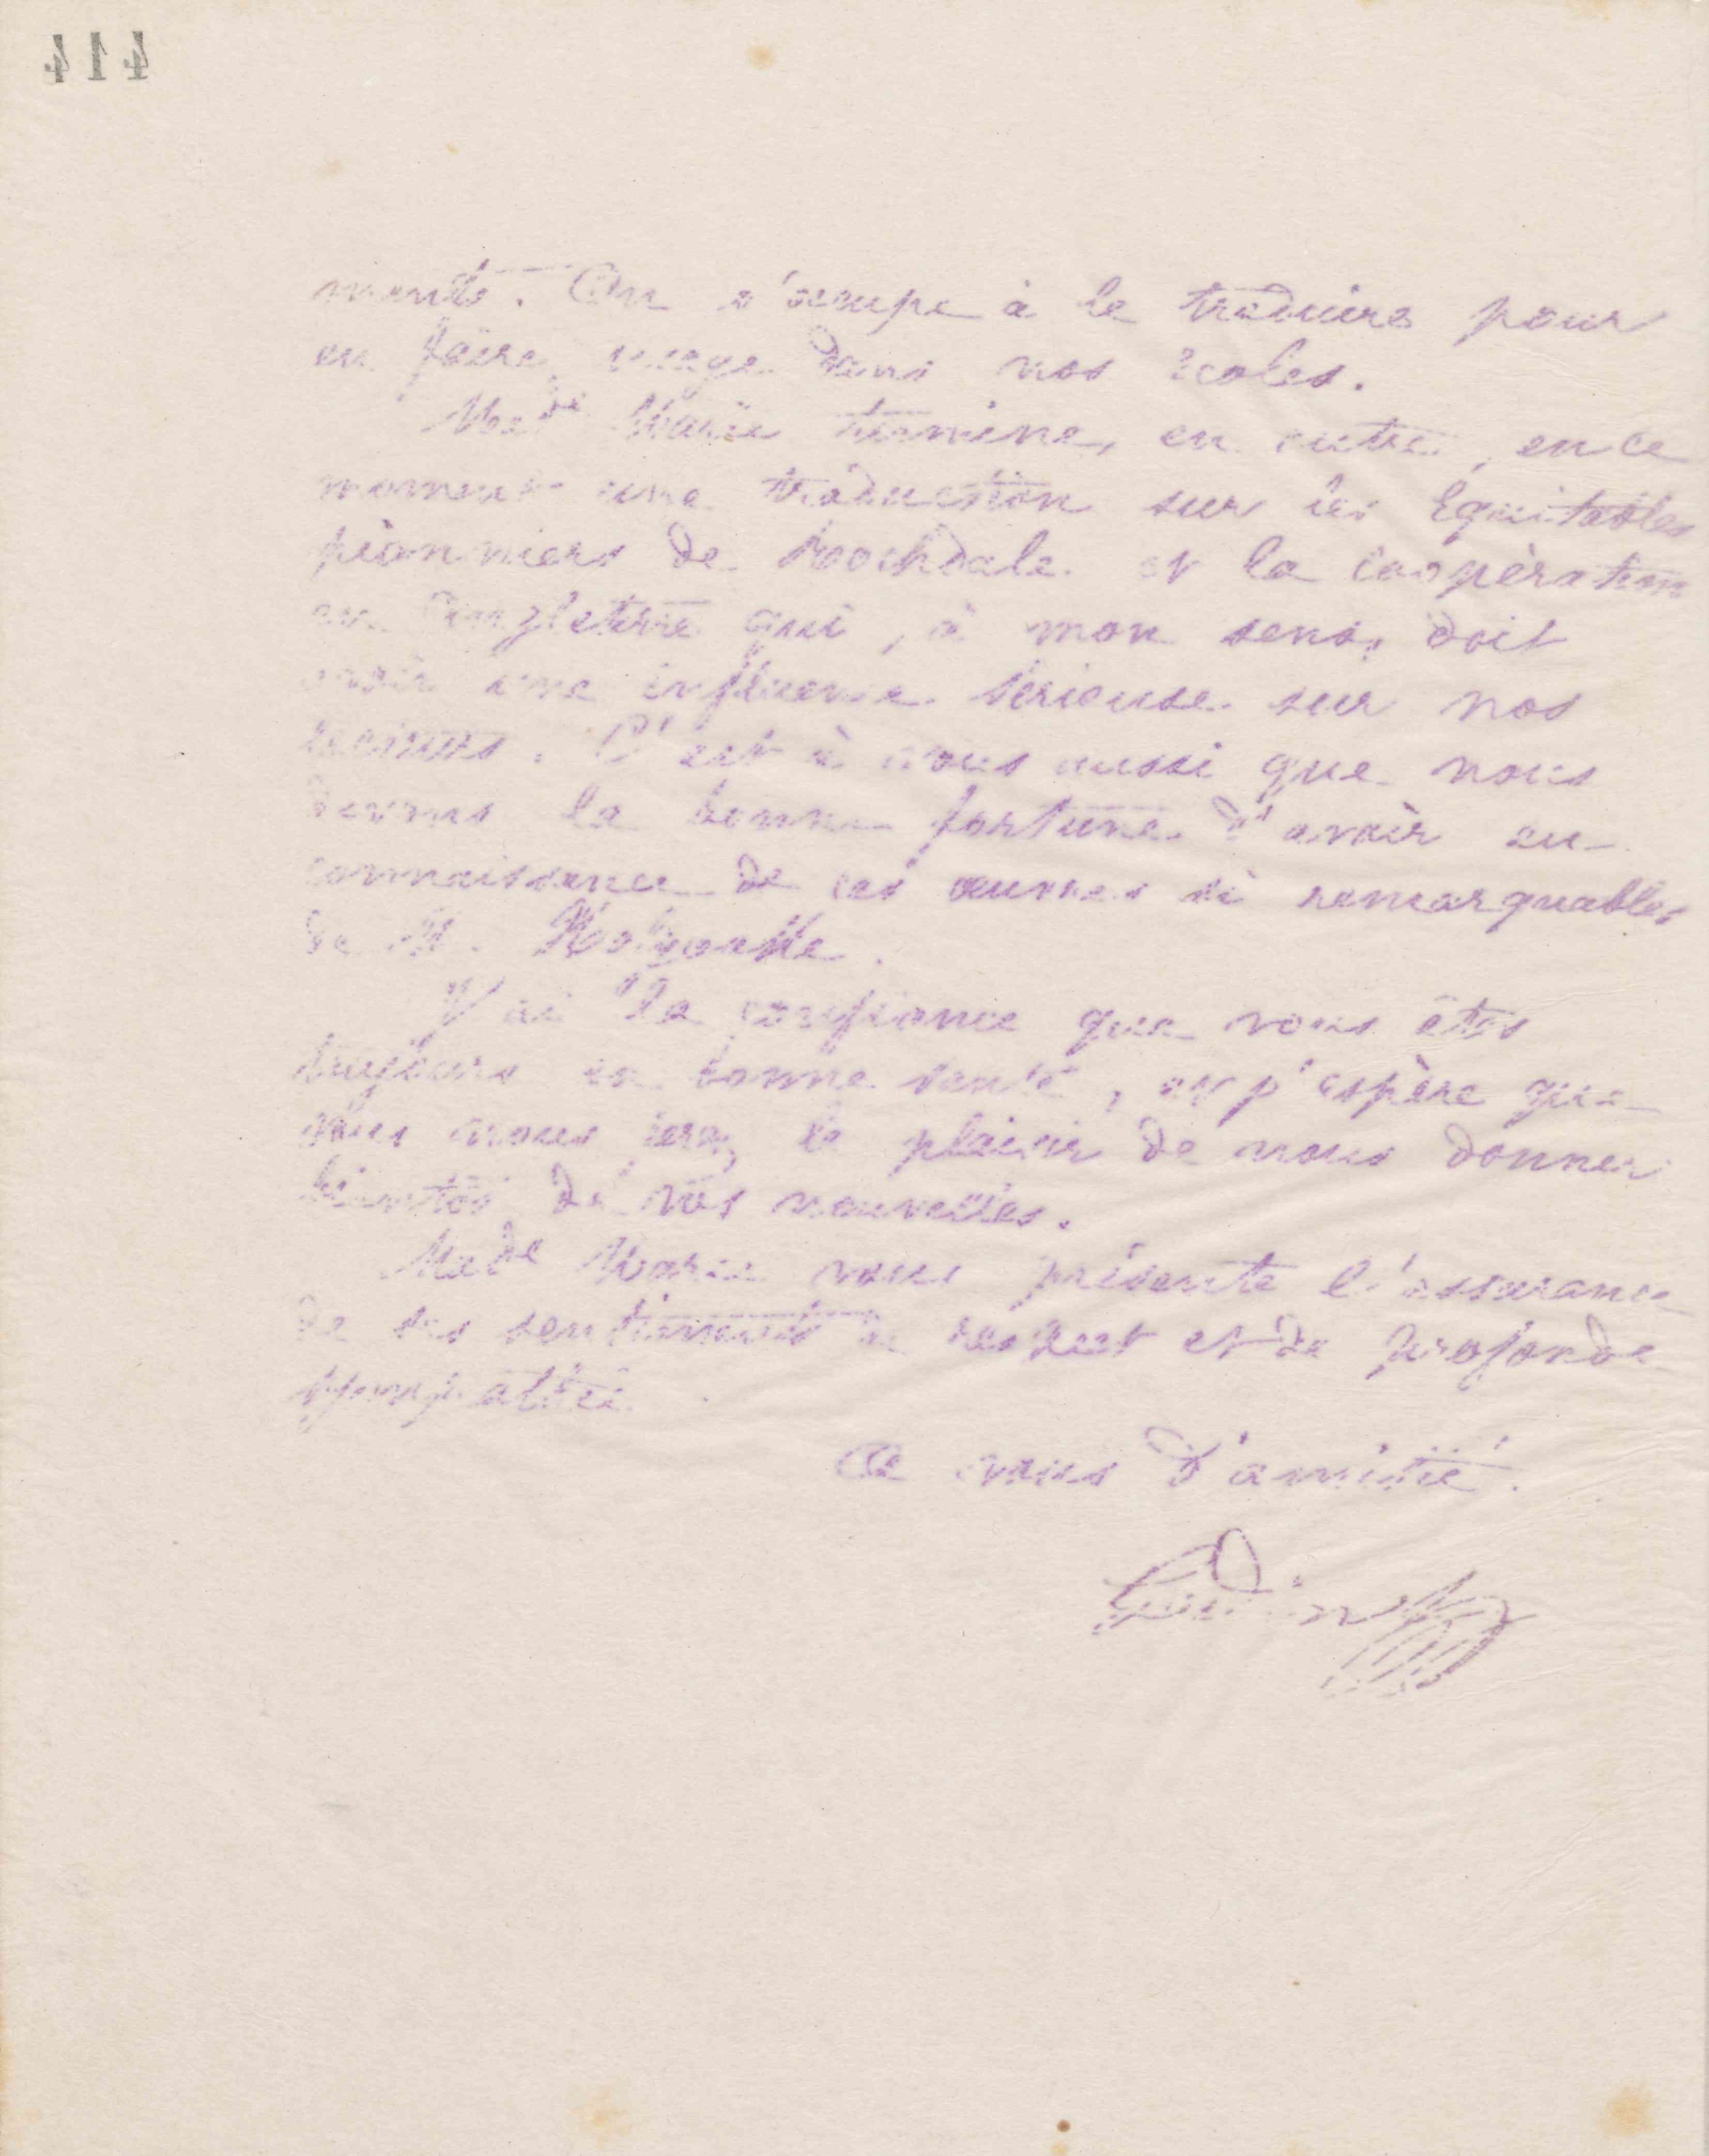 414
ments. On s'occupe à le traduire pour
en faire usage dans nos écoles.
Mad^e Marie termine, en outre, en ce
moment une traduction sur les Equitables
pionniers de Roochdale et la coopération
en Angleterre qui, à mon sens, doit
avoir une influence sérieuse sur nos
C'est à vous aussi que nous
devons la bonne fortune d'avoir eu
connaissance de ces œuvres si remarquables
de M. Holyoake.
J'ai la confiance que vous êtes
toujours en bonne santé, et j'espère que
vous nous ferez le plaisir de nous donner
bientôt de vos nouvelles.
Mad^e Marie vous présente l'assurance
de ses sentiments de respect et de profonde
sympathie.
A vous d'amitié.
Godin